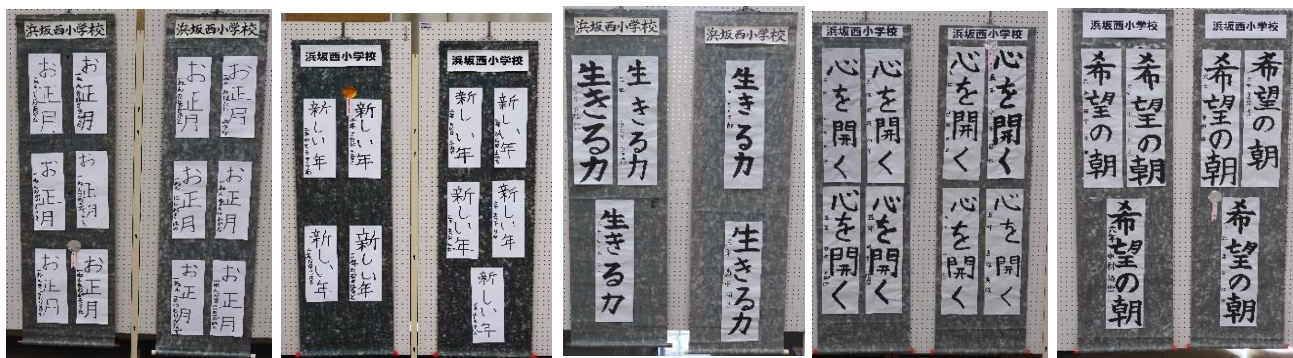 浜坂西小学校
お正月
お正月
お正月
お正月
お正月
お正月
浜坂西小学校
お正月
お正月
お正月
お正月
お正月
お正月
浜坂西小学校
新しい年
新しい年
新しい年
新しい年
浜坂西小学校
新しい年
新しい年
新しい年
新しい年
新しい年
浜坂西小学校
生きる力
生きる力
生きる力
浜坂西小学校
生きる力
生きる力
浜坂西小学校
心を開く
心を開く
心を開く
心を開く
浜坂西小学校
心を開く
心を開く
心を開く
心を開く
浜坂西小学校
希望の朝
希望の朝
希望の朝
浜坂西小学校
希望の朝
希望の朝
希望の朝